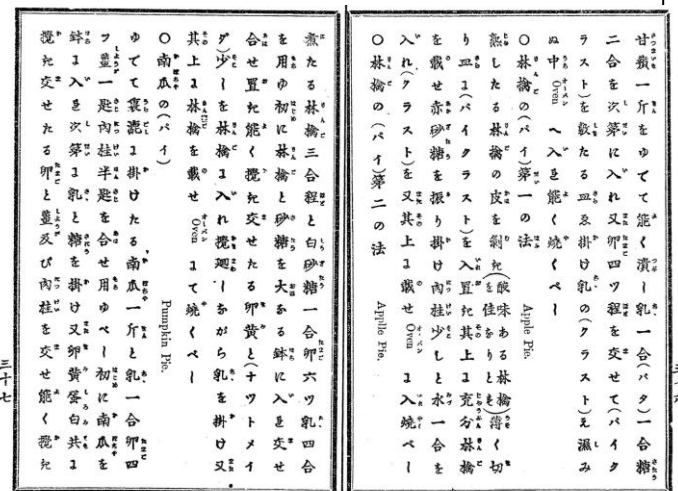 甘藷一斤をゆでて能く潰し乳一合(バタ)一合糖
二合を次第に入れ又卵四ツ程を交せて(パイク
ラスト)を敷たる皿ゑ掛け乳の(クラスト)え濕み
ぬ中 Oven オーベン へ入き能く焼くべし
○林檎の(パイ)第一の法 Apple Pie.
熟したる林檎の皮を剝た(酸味ある林檎を佳なりとも)薄く切
り皿に(パイクラスト)を入置た其上に充分林檎
を載せ赤砂糖を振り掛け肉桂少しと水一合を
入れ(クラスト)を又其上に載せ Oven オーベン に入焼べし
○林檎の(パイ)第二の法 Applle Pie.
煮たる林檎三合程と白砂糖一合卵六ツ乳四合
を用ゆ初に林檎と砂糖を大なる鉢に入き交せ
合せ置た能く攪た交せたる卵黄と(ナツトメイ
グ)少しを林檎に入れ攪廻しながら乳を掛け又
其上に林檎を載せ Oven オーベン にて焼くべし
○南瓜の(パイ) Pumpkin Pie.
ゆでて裏漉に掛けたる南瓜一斤と乳一合卵四
ツ薑一匙肉桂半匙を合せ用ゆべし初に南瓜を
鉢に入き次第に乳と糖を掛け又卵黄蛋白共に
攪た交せたる卵と薑及び肉桂を交せ能く攪た
三十七